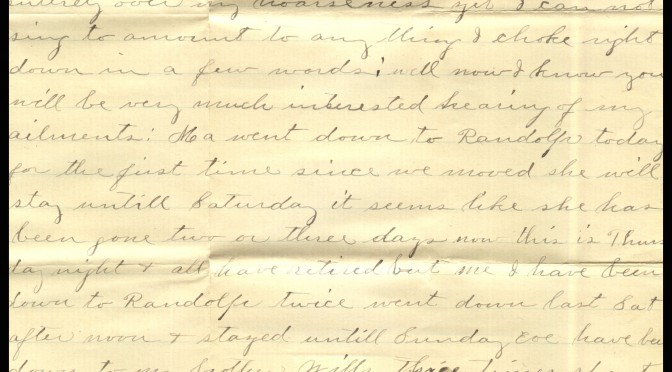 entirely over my hoarseness yet I can not
sing to amount to any thing I choke right
down in a few words; well now I know you
will be very much interested hearing of my
ailments: Ma went down to Randolph today
for the first time since we moved she will
stay untill Saturday it seems like she has
been gone two or three days now this is Thurs
day night & all have retired but me I have been
down to Randolph twice went down last Sat
after noon & stayed untill Sunday Eve have been
down to my brother Wills three times